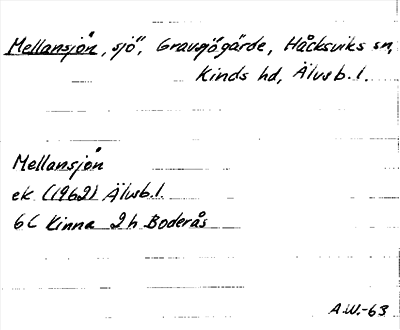 Mellansjön, sjö, Gravsjögärde, Håcksviks sn,
Kinds hd, Älvsb. l.
Mellansjön
ek (1962) Älvsb. l.
6C Kinna 2h Boderås
A.W.-63